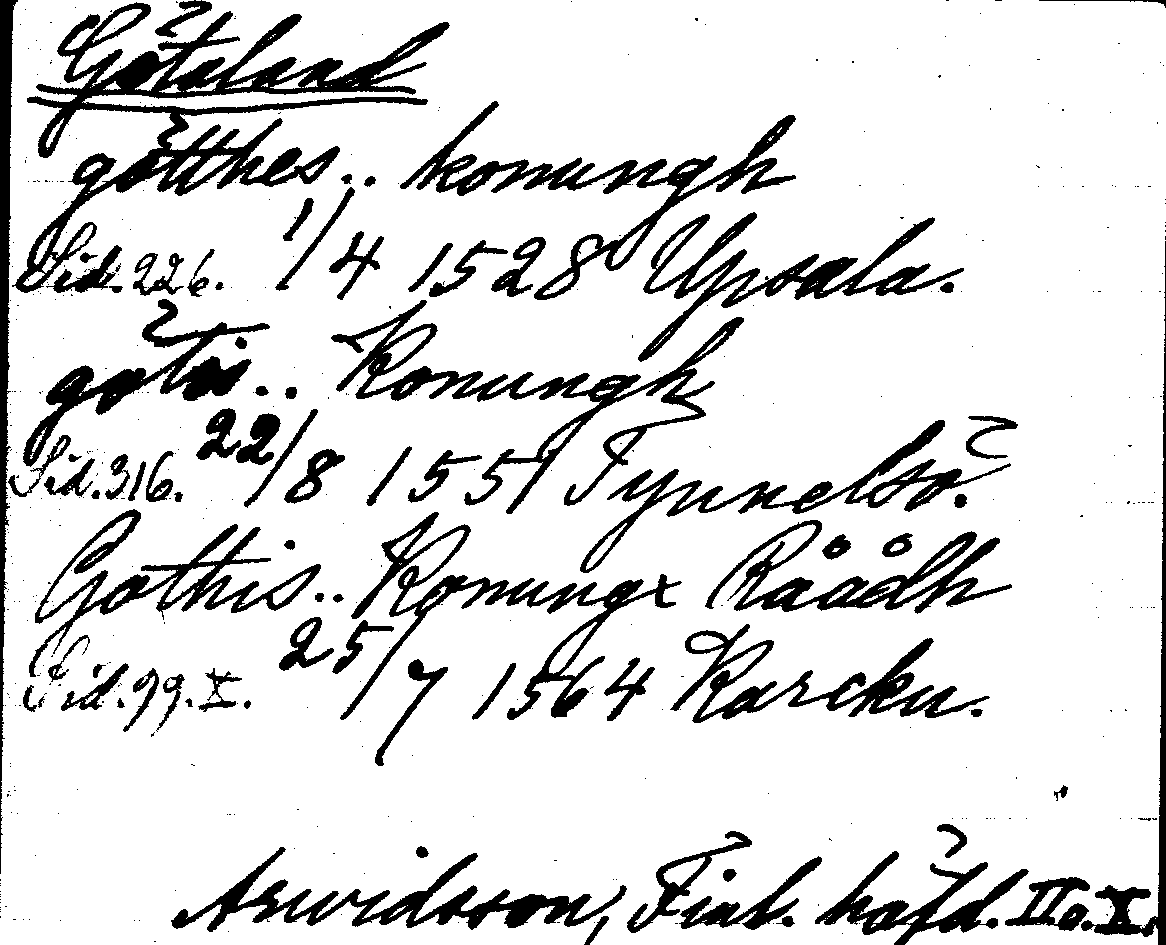 Götaland
götthes.. konungh
Sid. 226. 1/4 1528 Upsala.
götis.. Konungh
Sid. 316. 22/8 1551 Tynnelsö.
Gothis.. Konungx Råådh
Sid. 99. X. 25/7 1564 Karcku.
Arwidsson, Finl. häfd. II o. X.